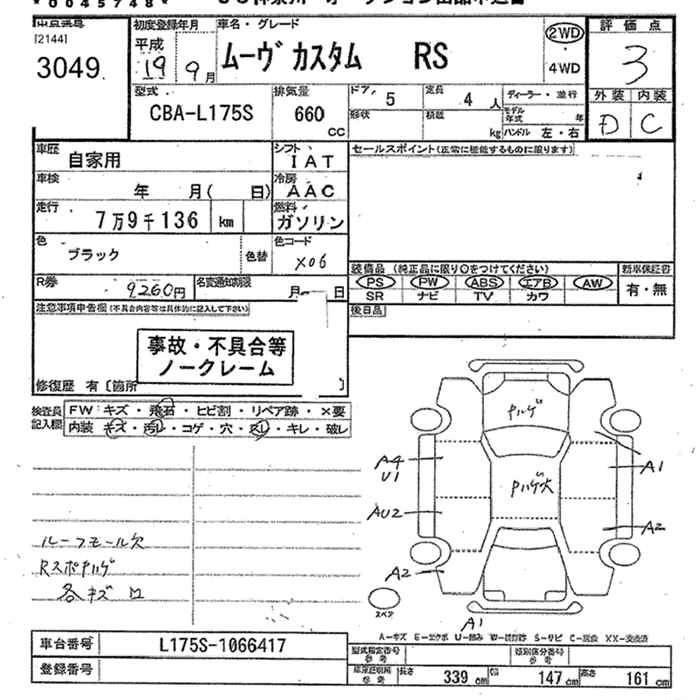 * 0 0 4 5 7 4 8 *
[2144]
3049
初度登録年月
平成
19年 9月
車名・グレード
ムーヴ カスタム RS
2WD
・
4WD
評価点
3
外装 内装
D C
型式
CBA-L175S
排気量
660
CC
ドア 5
定員 4 人
ディーラー・並行
形状
積載 kg
モデル年式 年
ハンドル 左・右
車歴
自家用
シフト
IAT
車検
年 月( 日)
冷房
AAC
走行
7万9千136 km
燃料
ガソリン
色
ブラック
色替
色コード
X06
R券
9260円
名変通知期限
月
注意事項申告欄(不具合内容等は具体的に記入して下さい)
事故・不具合等
ノークレーム
修復歴 有〔箇所 〕
セールスポイント(正常に機能するものに限ります)
装備品(純正品に限り○をつけてください)
PS PW ABS エアB AW
SR ナビ TV カワ
新車保証書
有・無
後日品
検査員記入欄
FW: キズ・飛石・ヒビ割・リペア跡・×要
内装: キズ・汚レ・コゲ・穴・スレ・キレ・破レ
ルーフモール欠
各キズ
A4
U1
AU2
A2
A1
A2
A1
スペア
車台番号
L175S-1066417
登録番号
型式指定番号
参考
類別区分番号
参考
参考
長さ 339 cm
幅 147 cm
高さ 161 cm